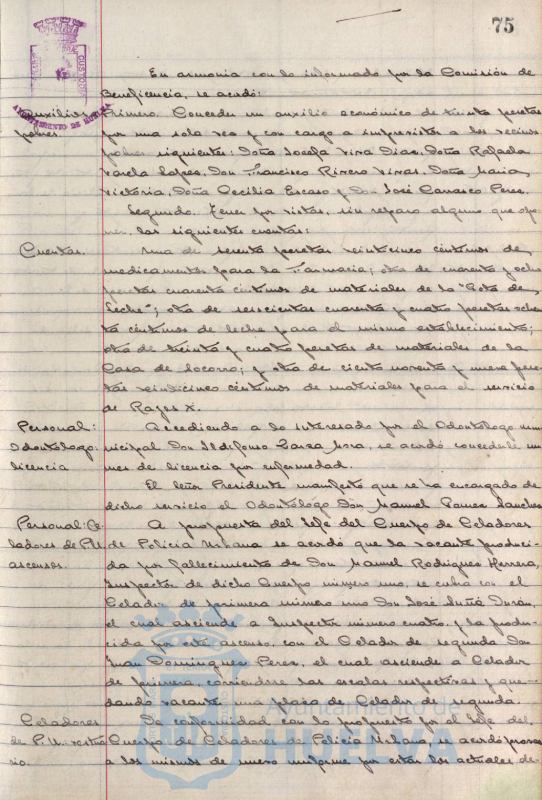 75
AYUNTAMIENTO DE HUELVA
En armonía con lo informado por la Comisión de
Beneficencia, se acordó:
Auxilios pobres
Primero. Conceder un auxilio económico de treinta pesetas
por una sola vez y con cargo a imprevistos a los vecinos
pobres siguientes: Doña Josefa Viva Diaz, Doña Rafaela
Varela Lopez, Don Francisco Rivero Vivas, Doña Maria
Victoria, Doña Cecilia Escaso y Don José Carrasco Perez.
Segundo. Tener por vistas, sin reparo alguno que opo-
ner, las siguientes cuentas:
Cuentas.
Una de setenta pesetas veinticinco céntimos de
medicamentos para la Farmacia; otra de cuarenta y ocho
pesetas cuarenta céntimos de materiales de la "Gota de
Leche"; otra de seiscientas cuarenta y cuatro pesetas ochen
ta céntimos de leche para el mismo establecimiento;
otra de treinta y cuatro pesetas de materiales de la
Casa de Socorro; y otra de ciento noventa y nueve pese-
tas veinticinco céntimos de materiales para el servicio
de Rayos X.
Personal: Odontólogo: licencia
Accediendo a lo interesado por el Odontólogo mu-
nicipal Don Ildefonso Zarza Mora, se acordó concederle un
mes de licencia por enfermedad.
El Señor Presidente manifestó que se ha encargado de
dicho servicio el Odontólogo Don Manuel Gomez Sanchez
Personal: Ce-
ladores de P.U.
ascensos.
A propuesta del Jefe del Cuerpo de Celadores
de Policía Urbana se acordó que la vacante produci-
da por fallecimiento de Don Manuel Rodriguez Herrera,
Inspector de dicho Cuerpo número uno, se cubra con el
Celador de primera número uno Don José Suñé Durán,
el cual asciende a Inspector número cuatro, y la produ-
cida por este ascenso, con el Celador de segunda Don
Juan Dominguez Perez, el cual asciende a Celador
de primera, corriendose las escalas respectivas y que-
dando vacante una plaza de Celador de segunda.
Celadores
de P.U. vestua
rio.
De conformidad con lo propuesto por el Jefe del
Cuerpo de Celadores de Policía Urbana, se acordó proveer
a los mismos de nuevo uniforme por estar los actuales de-
Ayuntamiento de
HUELVA